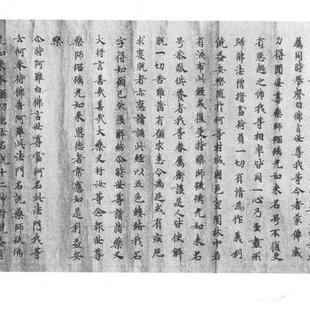 屬同時舉聲白佛言世尊我等今者蒙佛威
力得聞世尊藥師琉璃光如來名号不復更
有惡趣之怖我等相率皆同一心乃至盡形
歸佛法僧誓當荷負一切有情為作義利
饒益安樂隨於何等村城國邑空閑林中若
有流布此經或復受持藥師琉璃光如來名
号恭敬供養者我等眷屬衛護是人皆使解
脫一切苦難諸有願求悉令滿足或有疾厄
求度脫者亦應讀誦此經以五色縷結我名
字得如願已然後解結尒時世尊讚諸藥叉
大將言善哉善哉大藥叉將汝等念報世尊
藥師琉璃光如來恩德者常應如是利益安
樂
尒時阿難白佛言世尊當何名此法門我等
云何奉持佛告阿難此法門名說藥師琉璃
光如來本願功德亦名說十二神將饒益有